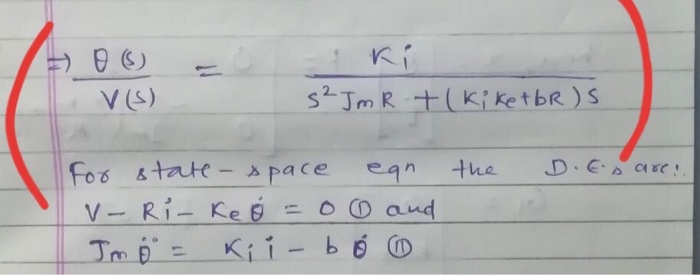 ⇒ θ(s) = Ki
V(s) s² JmR + (KiKe+bR)s
For state-space eqn the D.E.s are:
V - Ri - Keθ̇ = 0 ① and
Jmθ̈ = Kii - bθ̇ ②